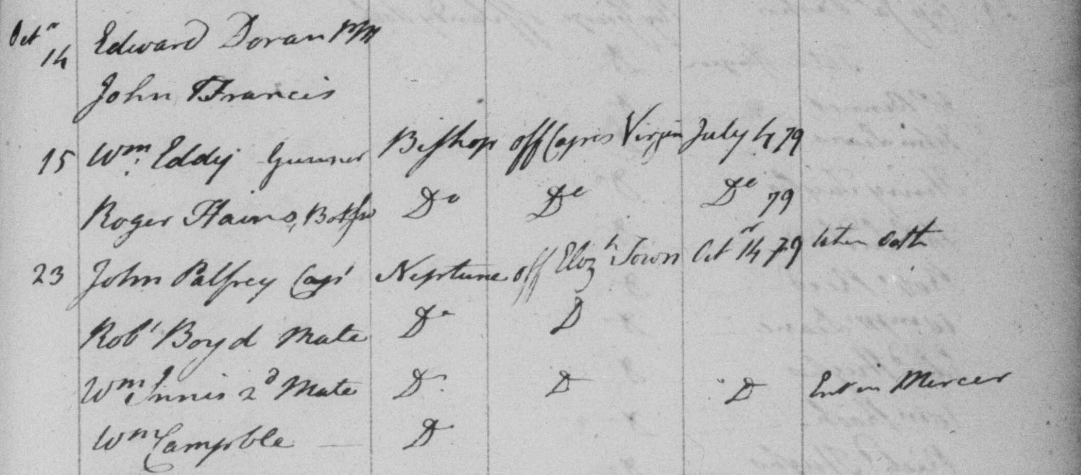 Octr
14 Edward Doran
John Francis
15 Wm. Eddy Gunner Bishop off Capes Virgin July 4 79
Roger Hains, Do De De 79
23 John Palfrey Capt Neptune off Elizh Town Oct 14 79 taken oath
Robt Boyd Mate Do D
Wm Innis 2d Mate D. D D Ent in Mercer
Wm Campble D